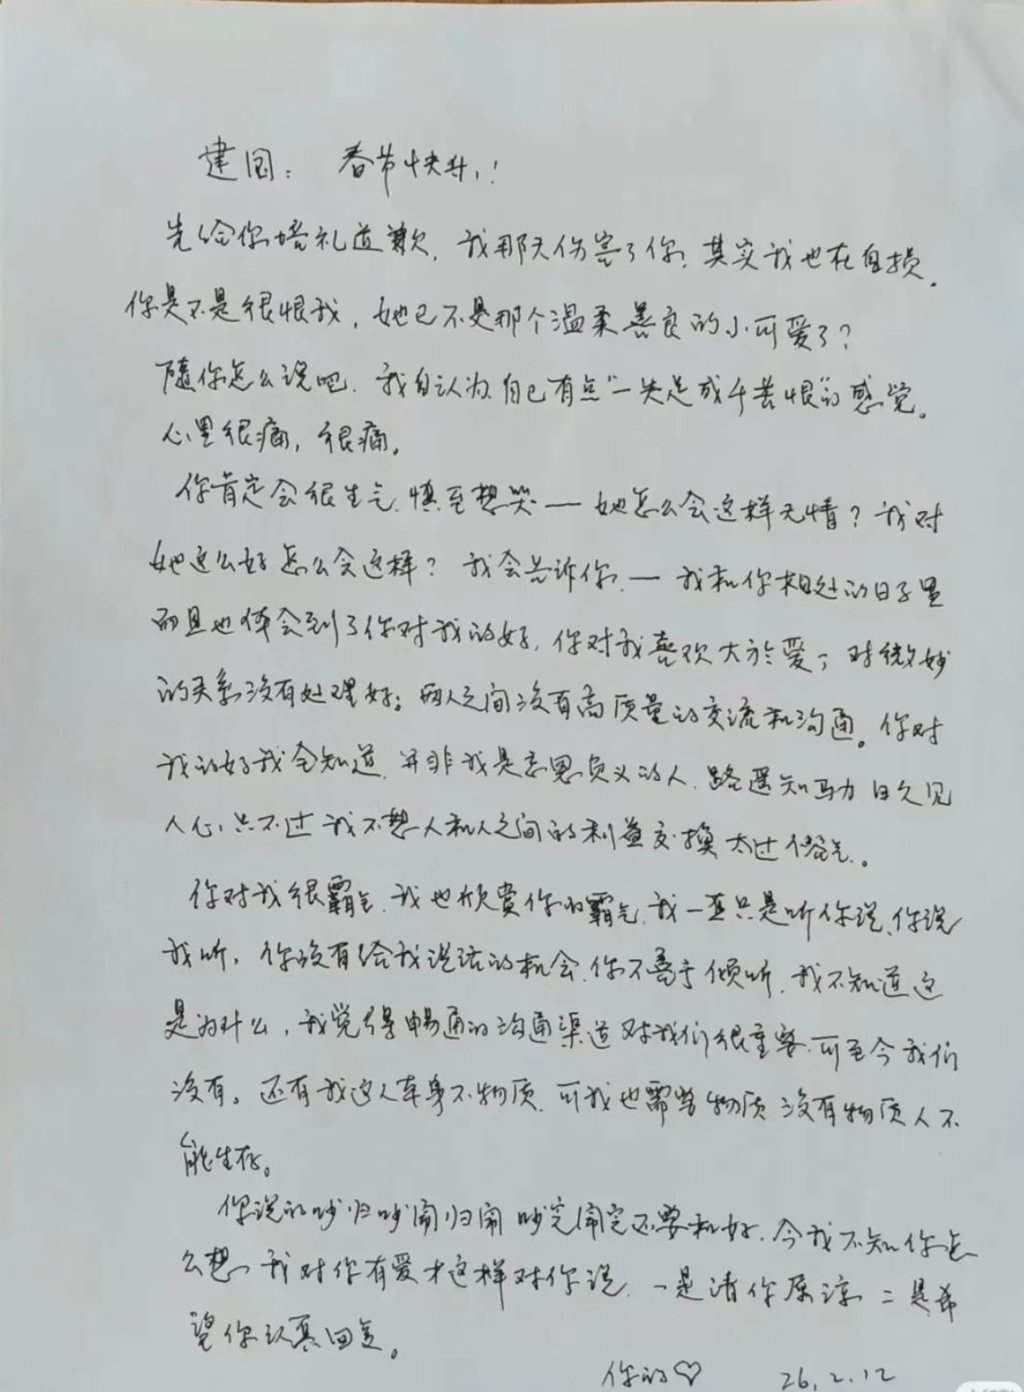 建国：春节快乐！
先给你培礼道歉，我那天伤害了你，其实我也在自损。
你是不是很恨我，她已不是那个温柔善良的小可爱了？
随你怎么说吧，我自认为自己有点“一失足成千苦恨”的感觉。
心里很痛，很痛。
你肯定会很生气，慎至想哭——她怎么会这样无情？我对
她这么好怎么会这样？我会告诉你，——我和你相处的日子里
而且也体会到了你对我的好，你对我喜欢大於爱；对微妙
的关系没有处理好；两人之间没有高质量的交流和沟通。你对
我的好我全知道，并非我是忘恩负义的人，路遥知马力日久见
人心，只不过我不想人和人之间的利益交换太过俗气。
你对我很霸气，我也欣赏你的霸气，我一直只是听你说，你说
我听，你没有给我说话的机会，你不善于倾听，我不知道这
是为什么，我觉得畅通的沟通渠道对我们很重要，可至今我们
没有。还有我这人本身不物质，可我也需要物质没有物质人不
能生存。
你说的吵归吵闹归闹吵完闹完还要和好，今我不知你怎
么想，我对你有爱才这样对你说，一是请你原谅二是希
望你认真回复。
你的♡ 26.2.12